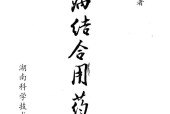 著
病结合用药
湖南科学技术